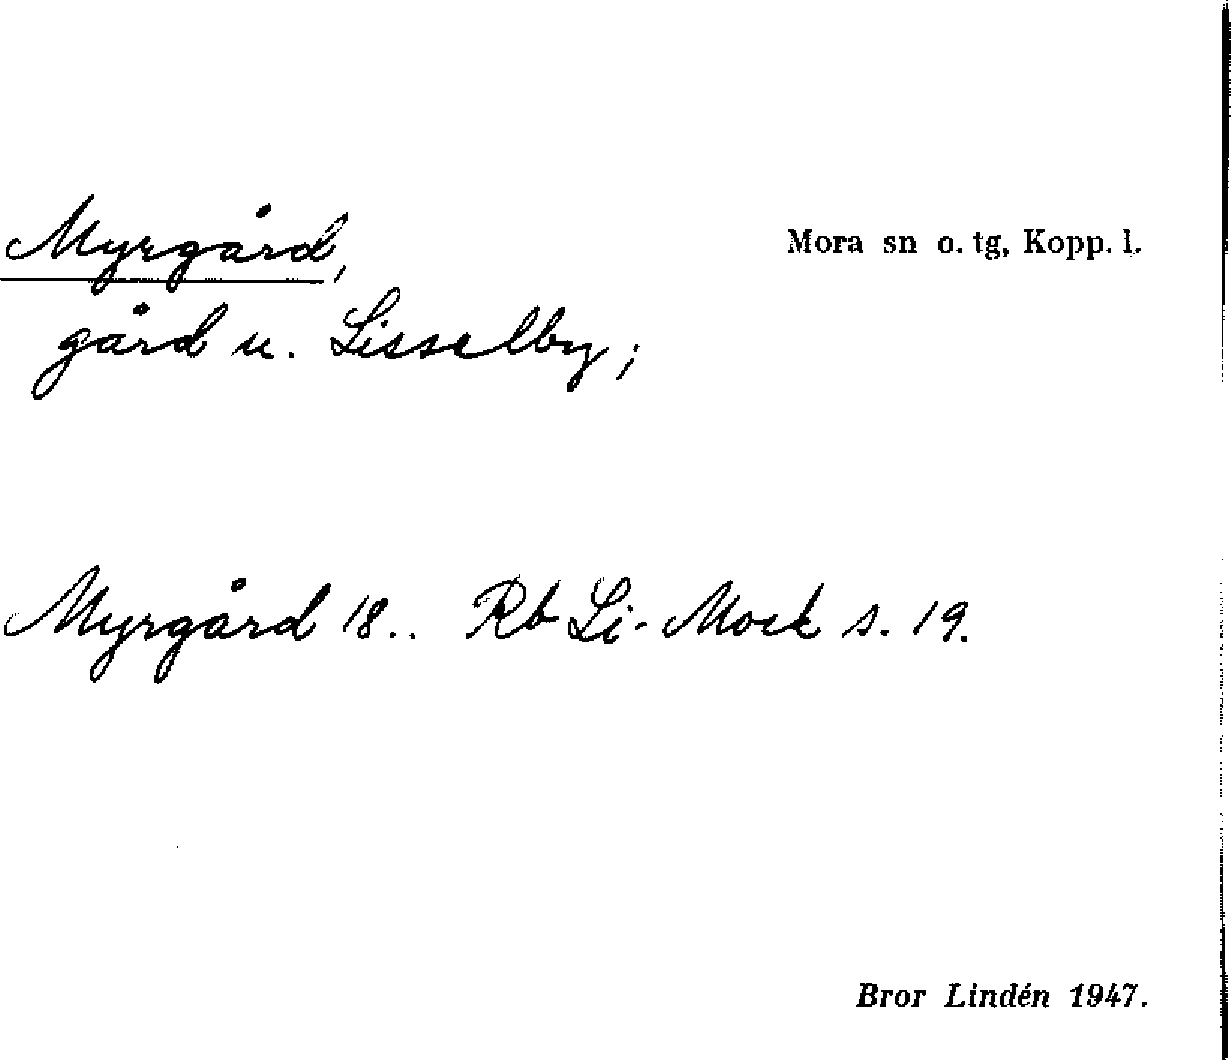 Myrgård,
Mora sn o. tg, Kopp. l.
gård u. Lisselby;
Myrgård 18.. Rb Li- Mock s. 19.
Bror Lindén 1947.